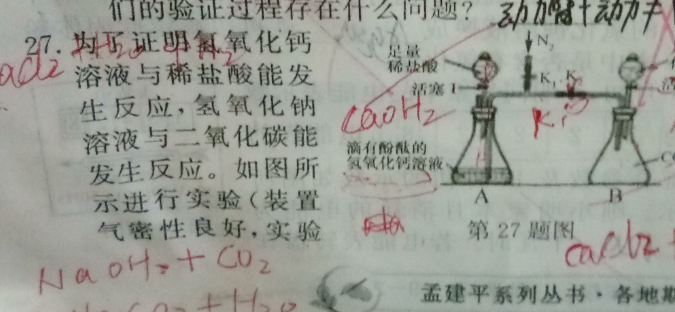 们的验证过程存在什么问题?
27. 为了证明氢氧化钙
溶液与稀盐酸能发
生反应,氢氧化钠
溶液与二氧化碳能
发生反应。如图所
示进行实验(装置
气密性良好,实验
N₂
足量
稀盐酸
活塞1
K₁
K₁
CaOH₂
滴有酚酞的
氢氧化钙溶液
A
B
第27题图
NaOH₂ + CO₂
孟建平系列丛书·各地期